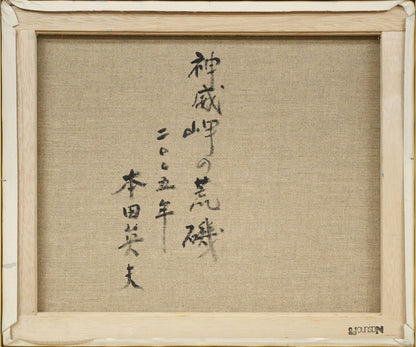 神威岬の荒磯
二〇〇五年
本田英夫